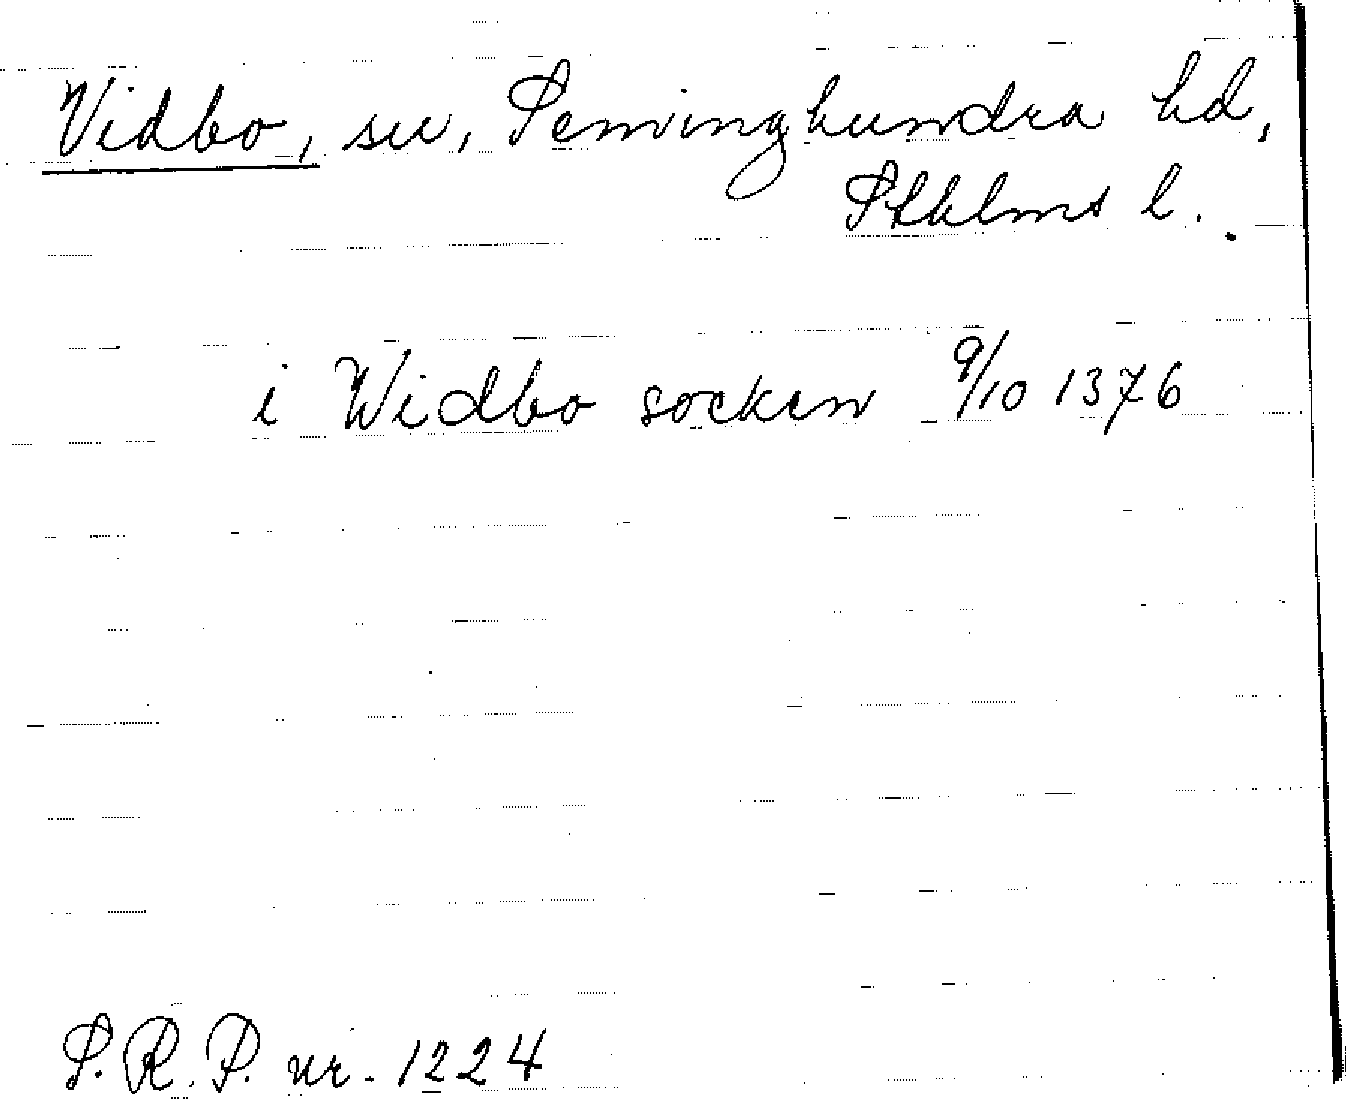 Vidbo, sn, Seminghundra hd,
Sthlms l.
i Widbo socken 9/10 1376
S.R.P. nr. 1224